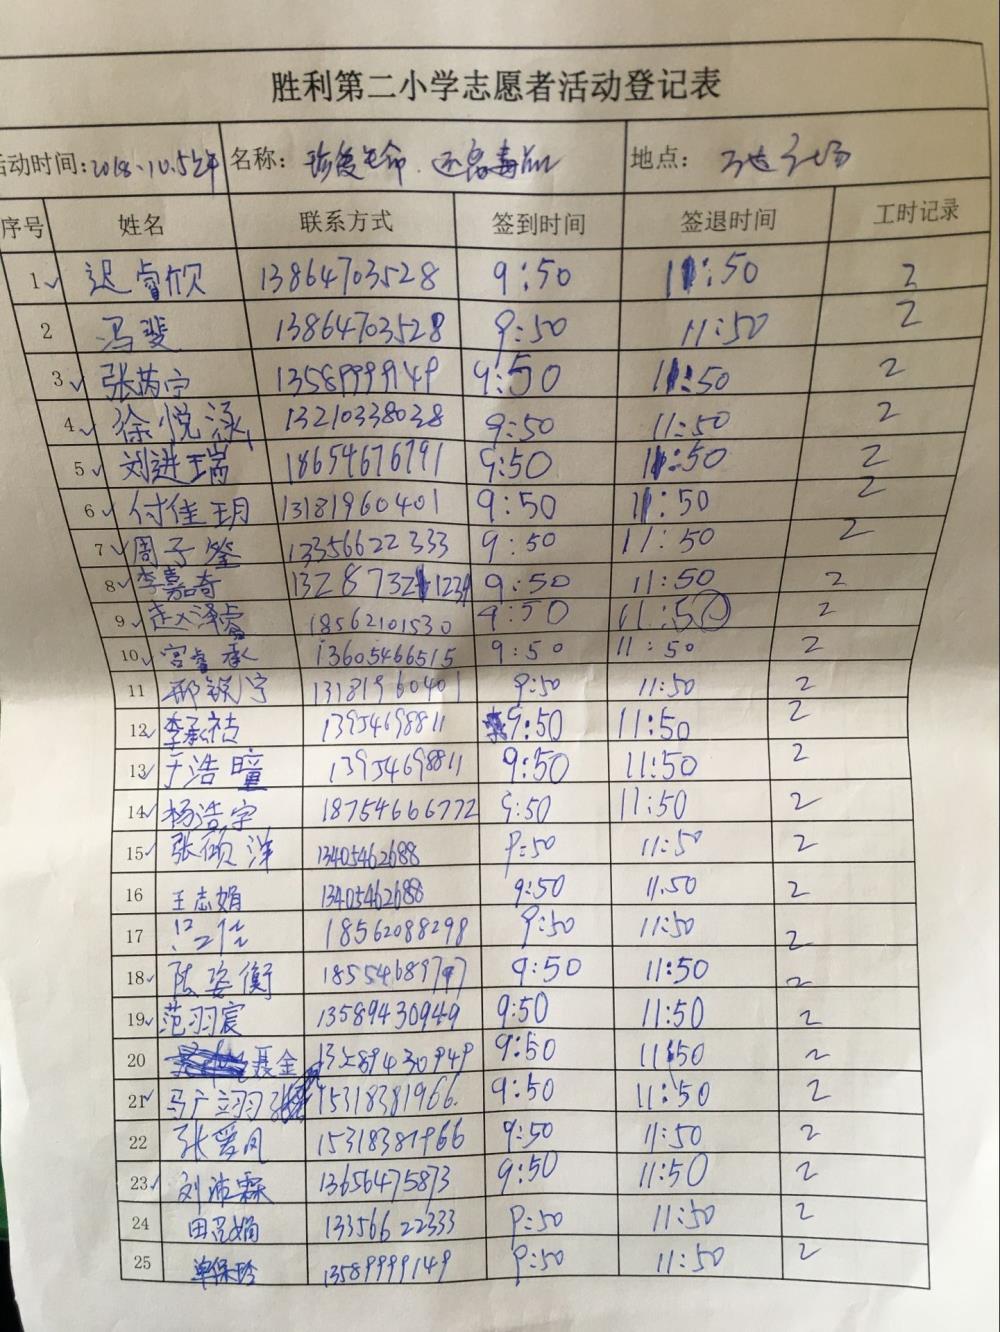 胜利第二小学志愿者活动登记表
活动时间:2018.10.5上午 名称: 珍爱生命 远离毒品 地点:
序号 姓名 联系方式 签到时间 签退时间 工时记录
1 ✓ 迟睿欣 13864703528 9:50 11:50 2
2 冯斐 13864703528 9:50 11:50 2
3 ✓ 张芮宁 13589999149 9:50 11:50 2
4 ✓ 徐悦泳 13210338028 9:50 11:50 2
5 ✓ 刘进瑞 18654676791 9:50 11:50 2
6 ✓ 付佳玥 13181960401 9:50 11:50 2
7 ✓ 周子筌 13356622333 9:50 11:50 2
8 ✓ 李嘉奇 9:50 11:50 2
9 ✓ 赵泽睿 18562101530 9:50 11:50 2
10 ✓ 宫睿承 13605466515 9:50 11:50 2
11 13181960401 9:50 11:50 2
12 ✓ 李承祜 13954698811 9:50 11:50 2
13 ✓ 于浩 13954698811 9:50 11:50 2
14 ✓ 杨浩宇 18754666772 9:50 11:50 2
15 ✓ 张硕洋 13405462688 9:50 11:50 2
16 王志娟 13405462688 9:50 11.50 2
17 18562088298 9:50 11:50 2
18 ✓ 陈姿衡 9:50 11:50 2
19 ✓ 范羽宸 13589430949 9:50 11:50 2
20 聂金 13589430949 9:50 11:50 2
21 ✓ 马广翊 15318381966 9:50 11:50 2
22 张爱凤 15318381966 9:50 11:50 2
23 ✓ 刘沛霖 13656475873 9:50 11:50 2
24 田 娟 13356622333 9:50 11:50 2
25 单保珍 13589999149 9:50 11:50 2